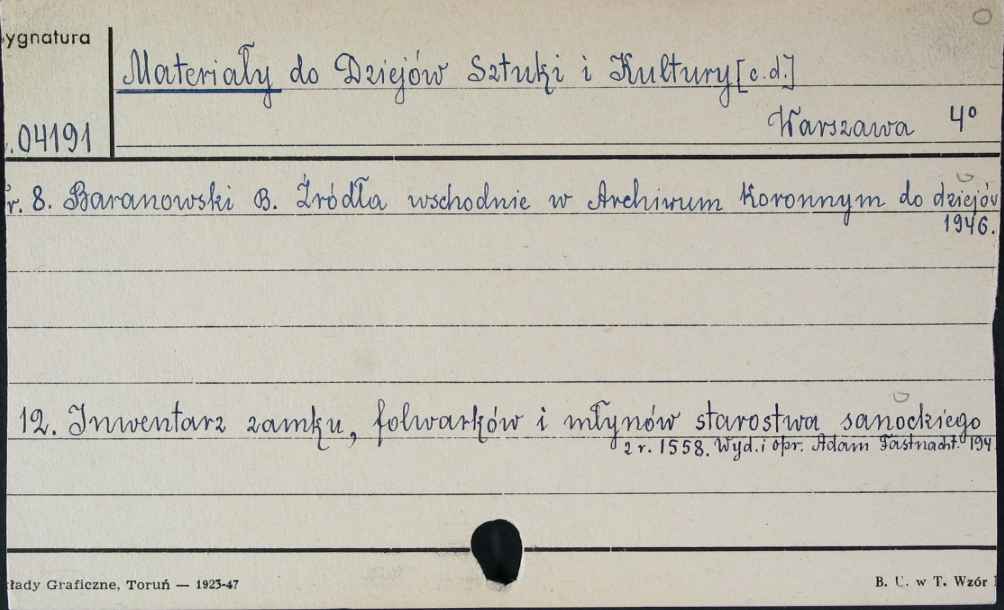 ygnatura
Materiały do Dziejów Sztuki i Kultury [c.d.]
Warszawa 4°
.04191
r. 8. Baranowski B. Źródła wschodnie w Archiwum Koronnym do dziejów
1946.
12. Inwentarz zamku, folwarków i młynów starostwa sanockiego
z r. 1558. Wyd. i opr. Adam Fastnacht. 194
łady Graficzne, Toruń — 1923-47
B. U. w T. Wzór